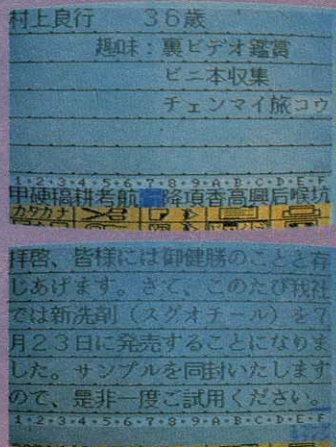 村上良行 36歳
趣味:裏ビデオ鑑賞
ビニ本収集
チェンマイ旅コウ
1・2・3・4・5・6・7・8・9・A・B・C・D・E・F
甲硬稿耕考航 降項香高興后喉坑
カタカナ
拝啓、皆様には御健勝のことと存
じあげます。さて、このたび我社
では新洗剤(スグオチール)を7
月23日に発売することになりま
した。サンプルを同封いたします
ので、是非一度ご試用ください。
1・2・3・4・5・6・7・8・9・A・B・C・D・E・F